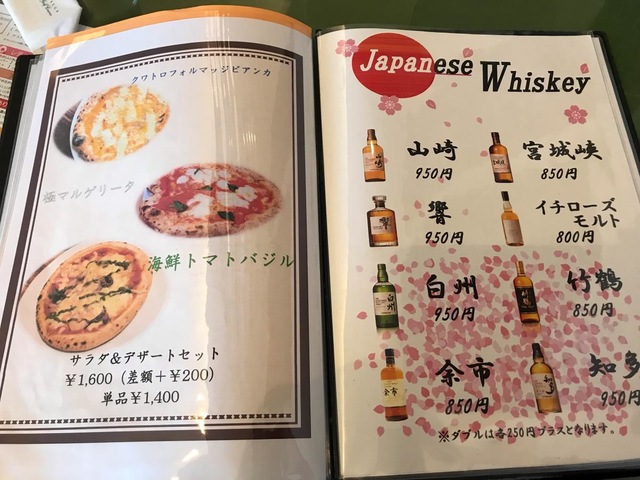 クワトロフォルマッジビアンカ
極マルゲリータ
海鮮トマトバジル
サラダ&デザートセット
¥1,600（差額+¥200）
単品¥1,400
Japanese Whiskey
山崎
950円
宮城峡
850円
響
950円
イチローズ
モルト
800円
白州
950円
竹鶴
850円
余市
850円
知多
950円
※ダブルは各250円プラスとなります。